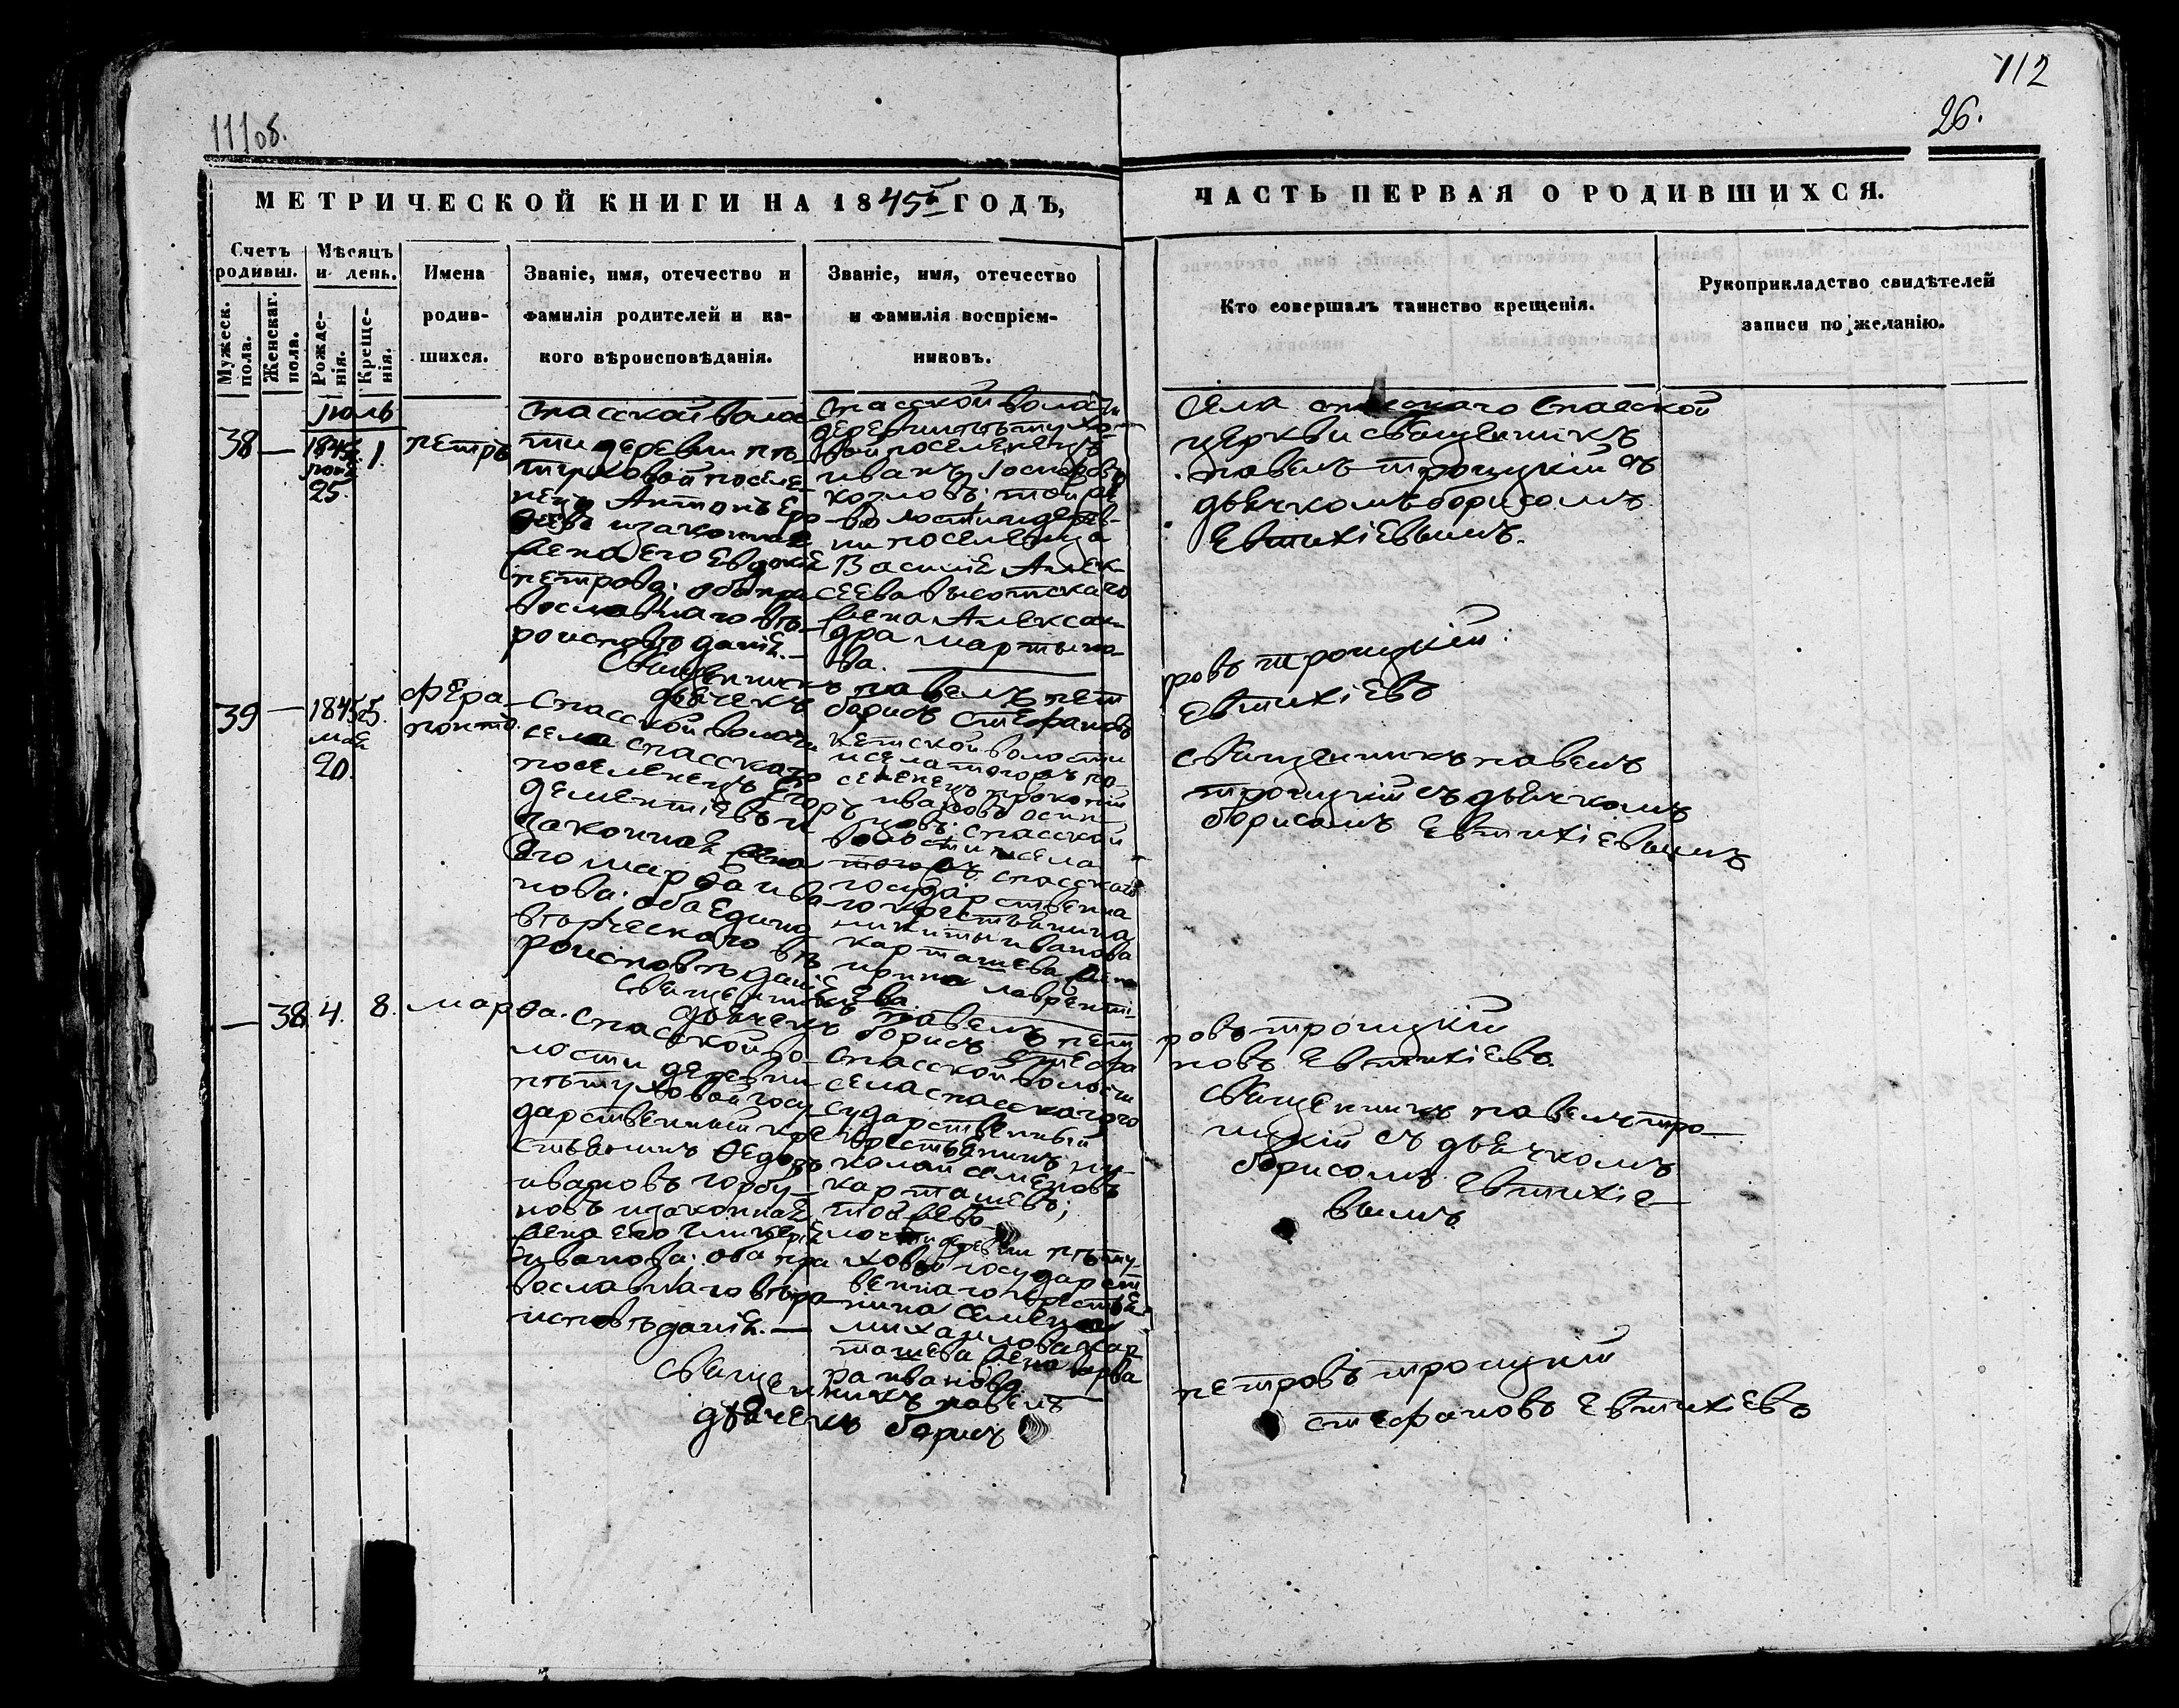 111об.
112
26.
МЕТРИЧЕСКОЙ КНИГИ НА 1845й ГОДЪ,
ЧАСТЬ ПЕРВАЯ О РОДИВШИХСЯ.
Счетъ родивш.
Мужеск. пола.
Женскаг. пола.
Мѣсяцъ и день.
Рожде-нія.
Креще-нія.
Имена
родив-
шихся.
Званіе, имя, отечество и
фамилія родителей и ка-
кого вѣроисповѣданія.
Званіе, имя, отечество
и фамилія воспріем-
никовъ.
Кто совершалъ таинство крещенія.
Рукоприкладство свидѣтелей
записи по желанію.
июль
38 —
1845
июн
25.
1.
петръ
спасской воло
сти деревни пѣ
туховой поселе
нецъ Антонъ
и законная
жена его Евдокіѧ
петрова; оба пра
вославнаго вѣ-
роисповѣданіѧ. —
спасской волости
деревни пѣтухо
вой поселенецъ
иванъ
козловъ; той же
волости и дерев-
ни поселенца
Василіѧ Алек-
сеева высотскаго
жена Алексан-
дра мартыно-
ва.
села спасскаго спасской
церкви свѧщенникъ
павелъ троицкій съ
дьѧчкомъ борисомъ
Евтихіевымъ.
Свѧщенникъ павелъ пет
ровъ троицкій
дьѧчекъ борисъ стефановъ
Евтихіевъ
39 —
1845
маѧ
20.
5.
фера
понтъ.
спасской волости
села спасскаго
поселенецъ Егоръ
дементіевъ и
законнаѧ жена
его марѳа ива
нова: оба едино
вѣрческаго вѣ
роисповѣданіѧ
кетской волости
и села тогожъ по-
селенецъ прокопій
ивановъ осип
цовъ; спасской
волости и села
тогожъ спасскаго
государственна
го крестьѧнина
никиты иванова
карташева жена
ирина лаврентi-
ева.
свѧщенникъ павелъ
троицкій съ дьѧчкомъ
борисомъ Евтихіевымъ
Свѧщенникъ павелъ пет
ровъ троицкій
дьѧчекъ борисъ стефа
новъ Евтихіевъ.
— 38.
4.
8.
марѳа.
спасской во-
лости деревни
пѣтуховой госу
дарственный кре
стьѧнинъ Ѳедоръ
ивановъ горбу-
новъ и законнаѧ
жена его гликеріѧ
иванова; оба пра
вославнаго вѣро
исповѣданіѧ. —
спасской волости
села спасскаго го
сударственный
крестьѧнинъ ни-
колай семеновъ
карташевъ;
той же во-
лости деревни пѣту-
ховой государст
веннаго крестьѧ
нина семена
михаилова кар
ташева жена варва
ра иванова.
Свѧщенникъ павелъ тро-
ицкій съ дьѧчкомъ
борисомъ Евтихіе-
вымъ
Свѧщенникъ павелъ
петровъ троицкій
дьѧчекъ борисъ
стефановъ Евтихіевъ